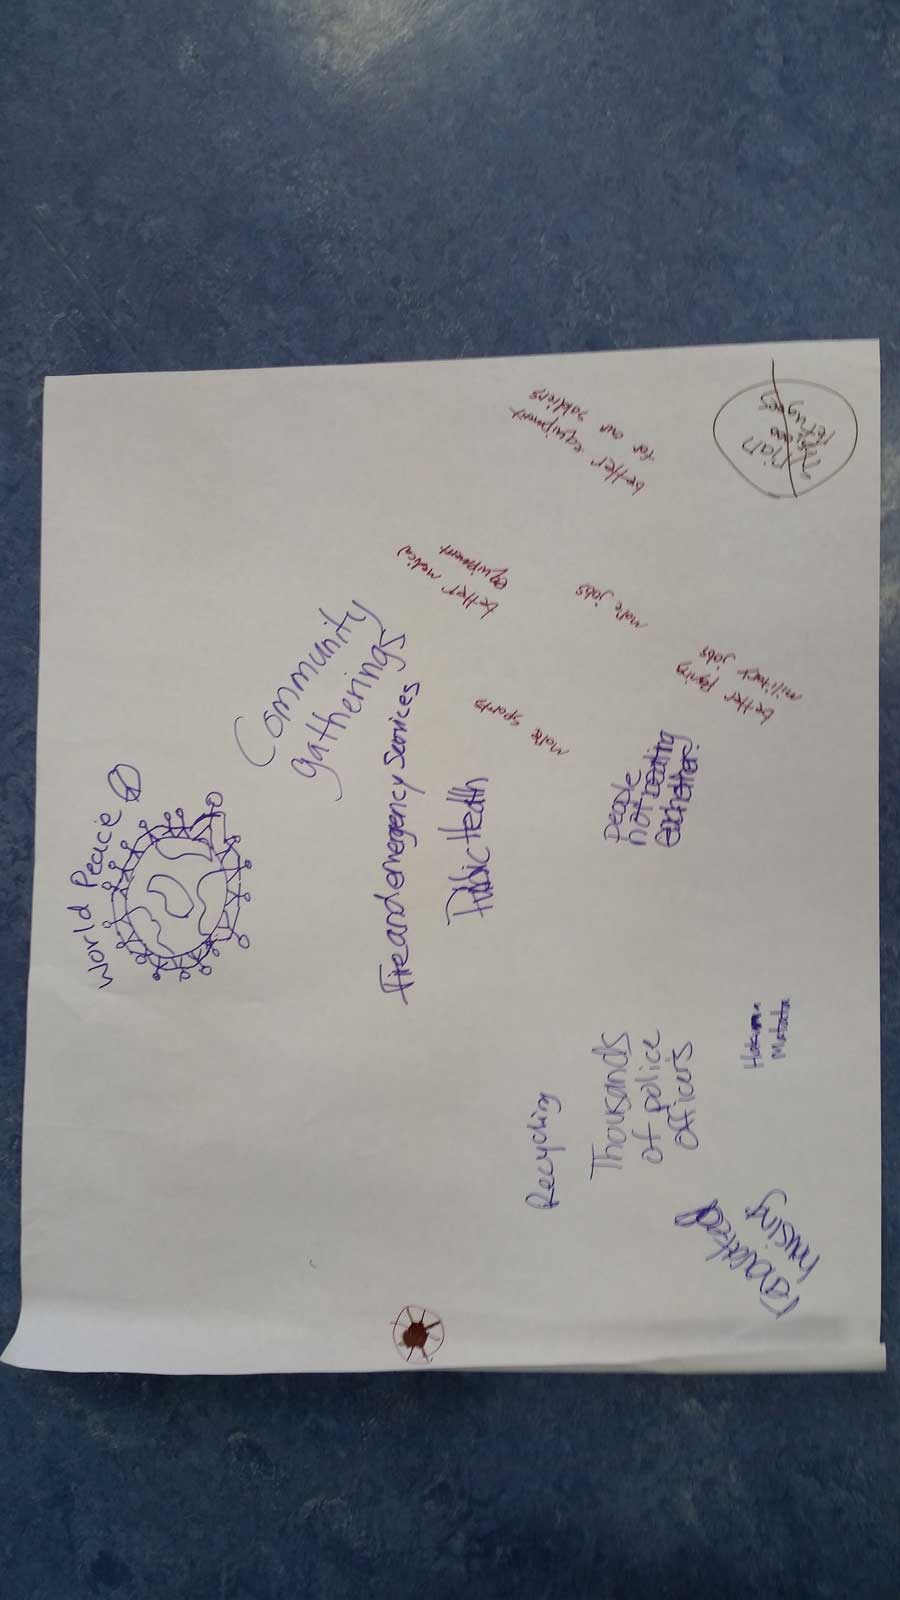 World Peace
Community
gatherings
Fire and emergency Services
Public Health
better medical
equipment
better equipment
for our soldiers
more sports
more jobs
better paying
military jobs
People
not beating
eachother
Recycling
Thousands
of police
officers
Hakuna
Matata
housing
refugees